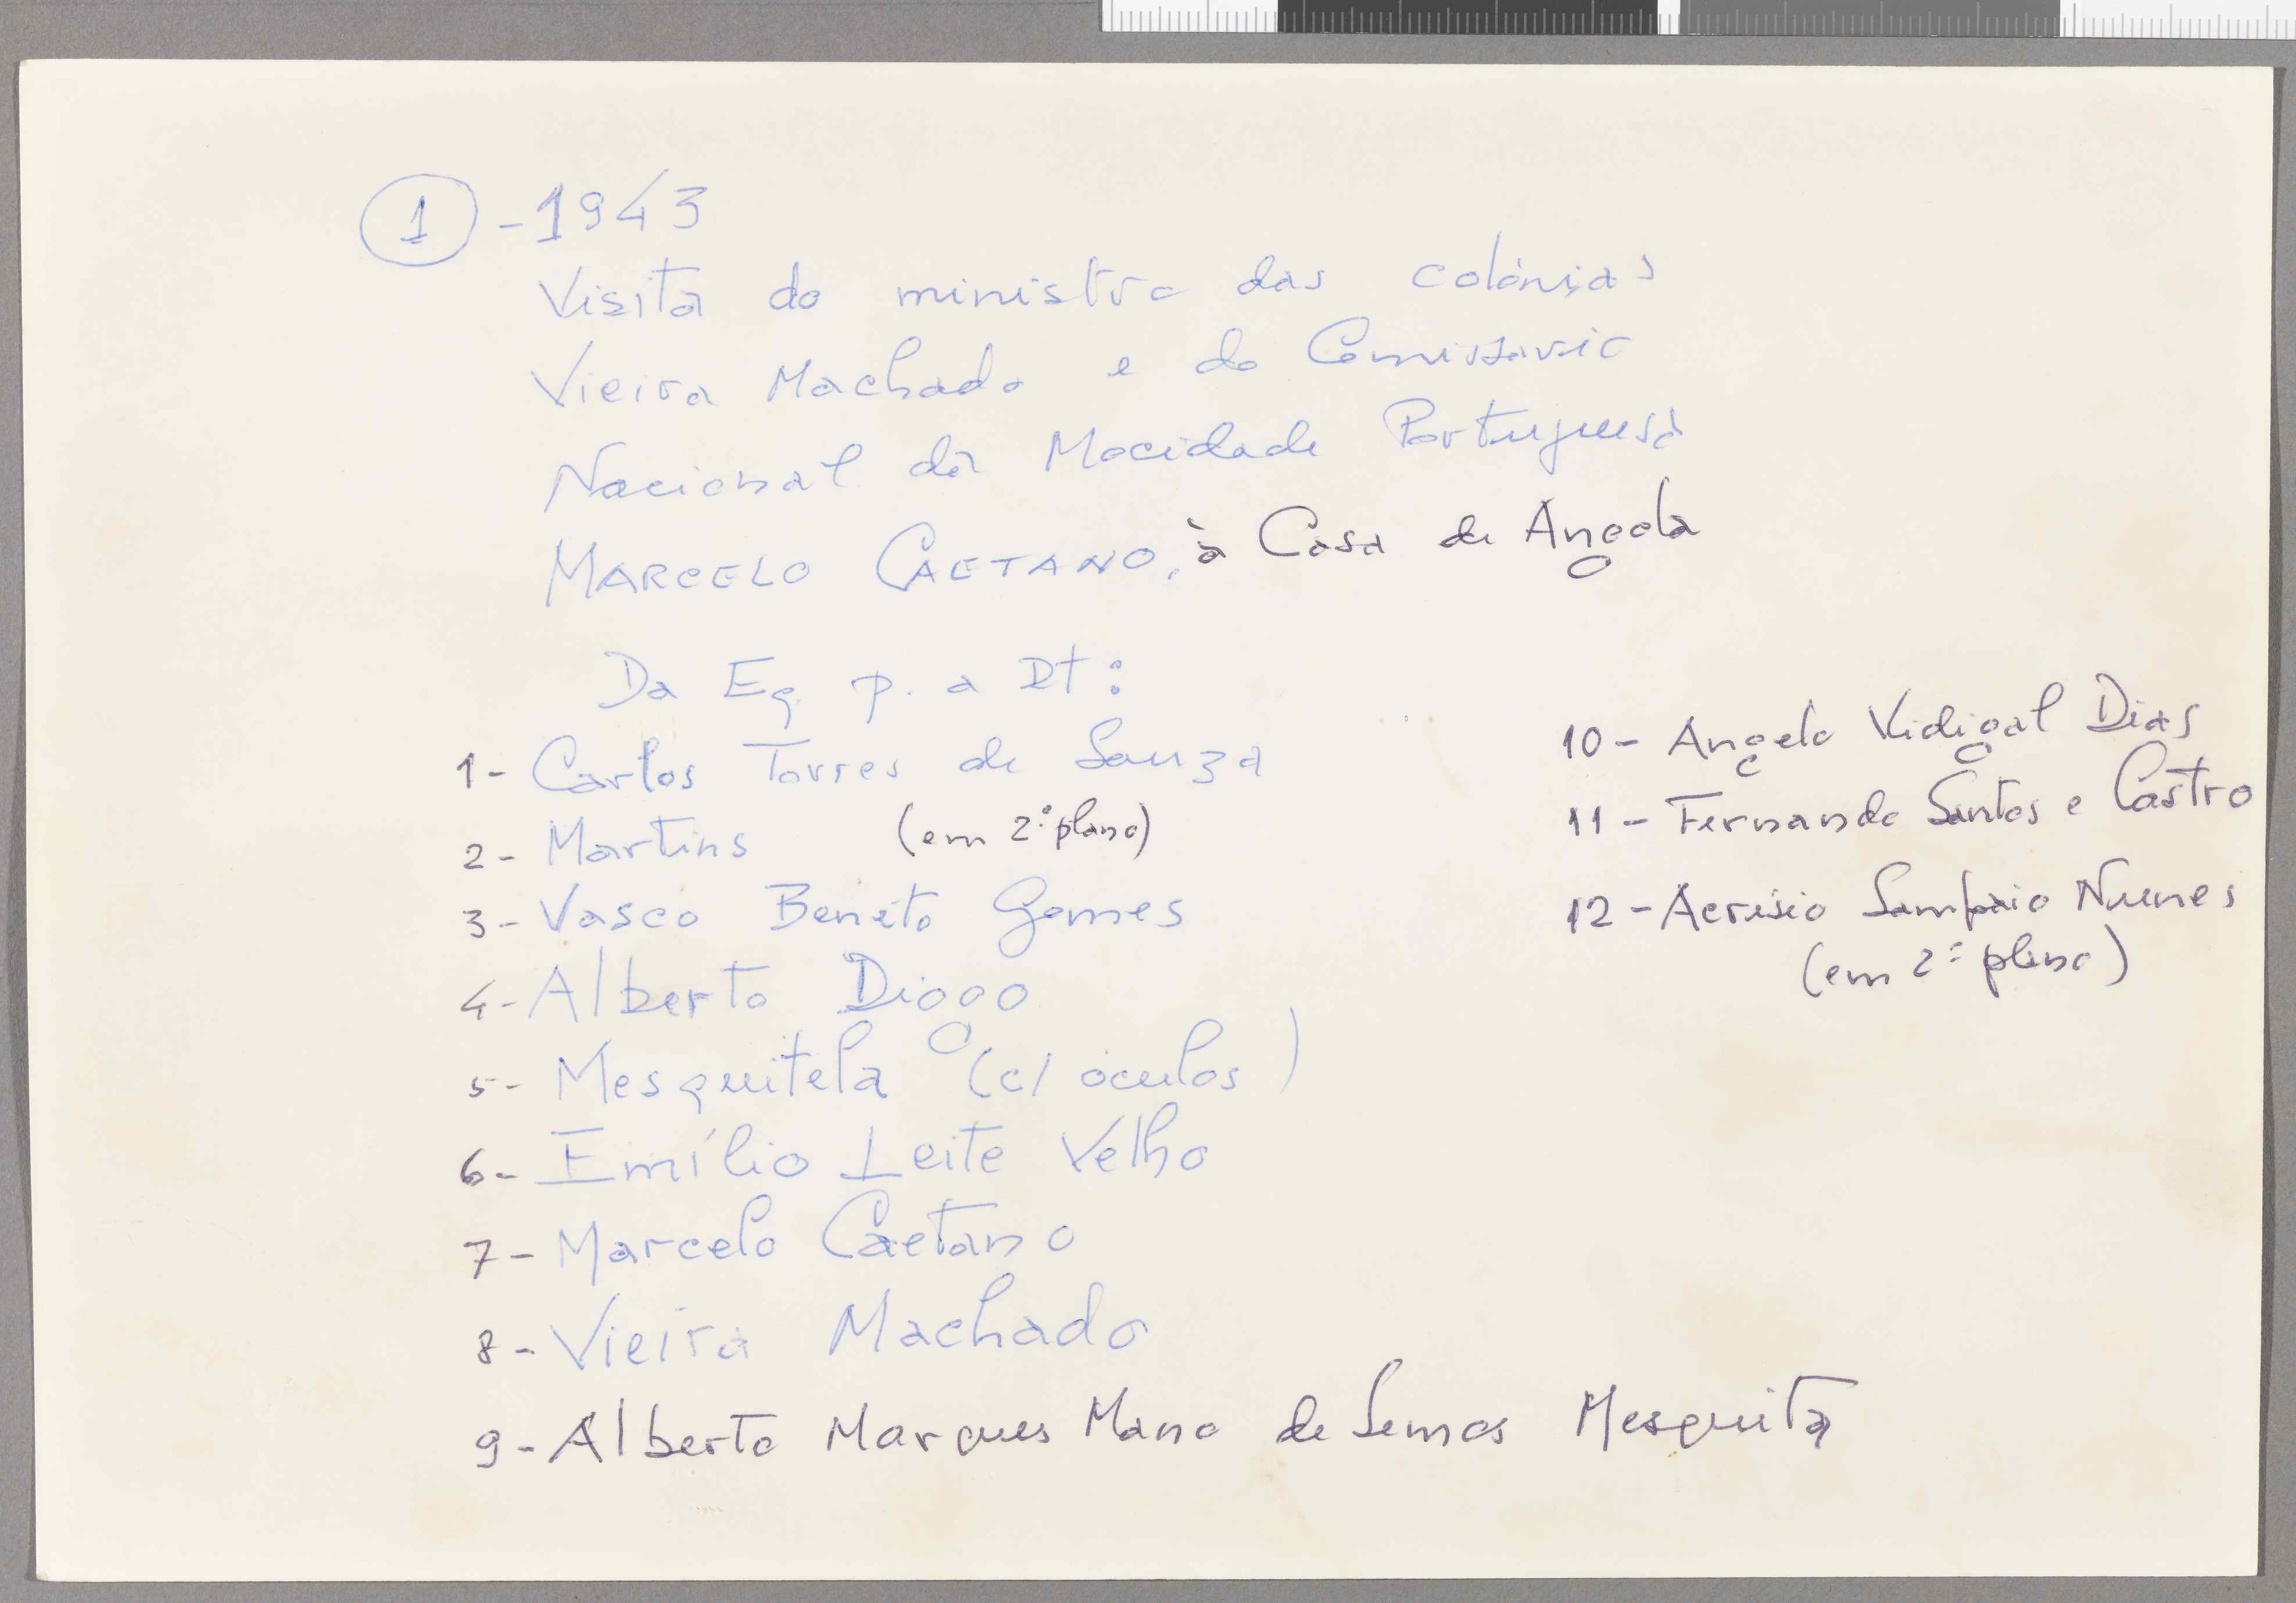 1 - 1943
Visita do ministro das colónias
Vieira Machado e do Comissario
Nacional da Mocidade Portuguesa
MARCELO CAETANO, à Casa de Angola
Da Eq. p. a Dt:
1- Carlos Torres de Souza
2- Martins (em 2º plano)
3- Vasco Benito Gomes
4- Alberto Diogo
5- Mesquitela (c/ óculos)
6- Emílio Leite Velho
7- Marcelo Caetano
8- Vieira Machado
9- Alberto Marques Mano de Lemos Mesquita
10- Angelo Vidigal Dias
11- Fernando Santos e Castro
12- Acrisio Sampaio Nunes
(em 2º plano)